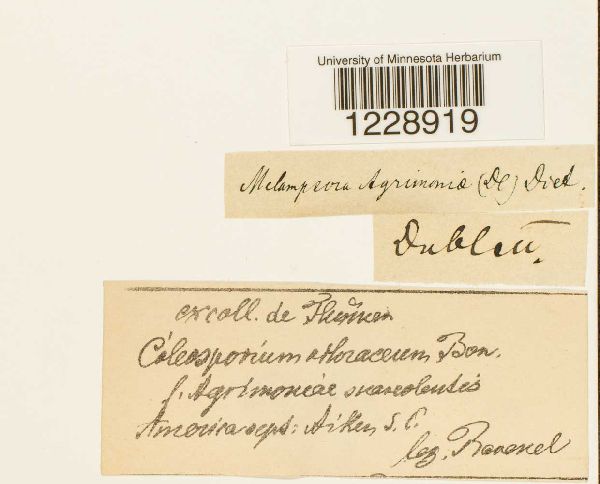 University of Minnesota Herbarium
1228919
Melampsora Agrimoniæ (DC) Diet.
Dublett.
ex coll. de Thümen
Coleosporium ochraceum Bon.
f. Agrimoniae suaveolentis
America sept: Aiken, S. C.
leg. Ravenel